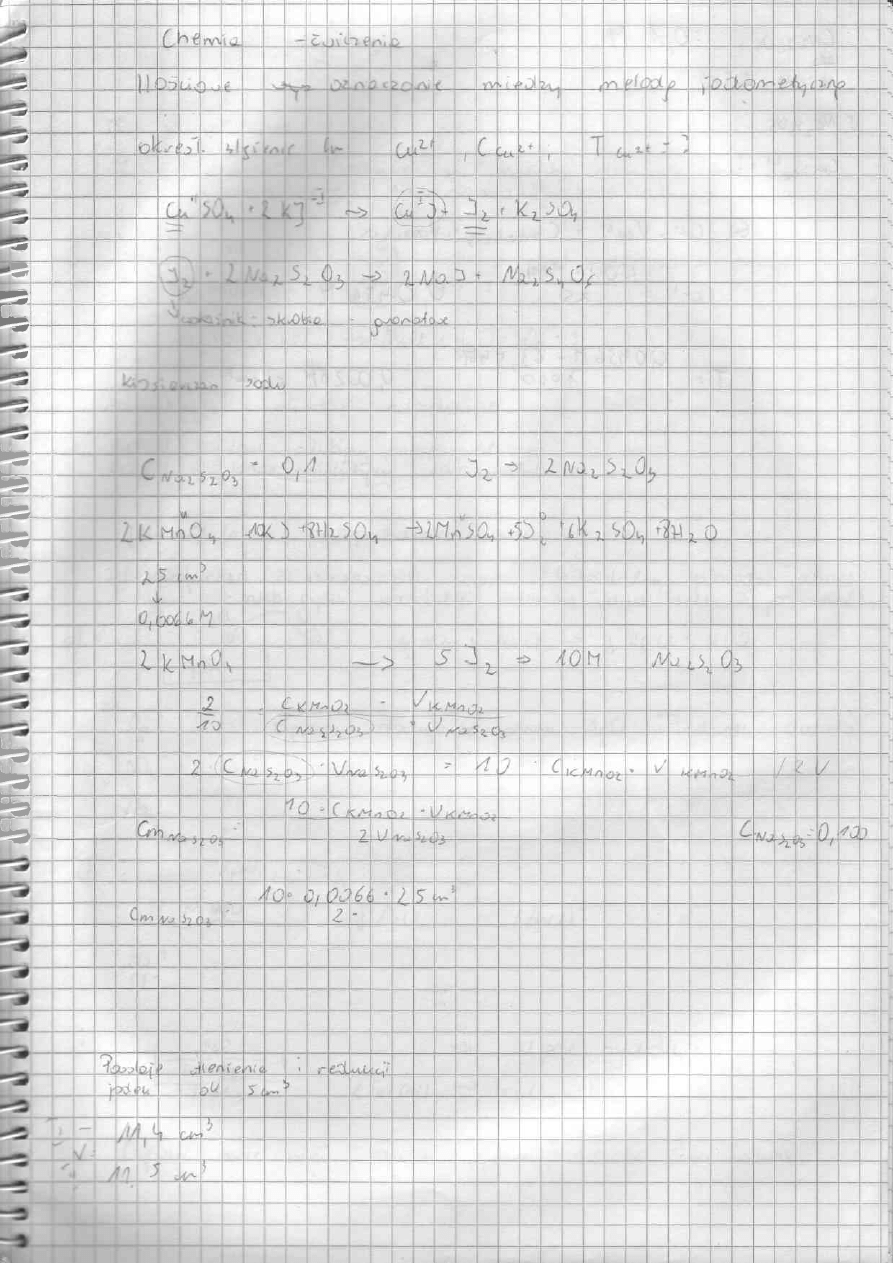 Chemia - ćwiczenia
Ilościowe oznaczanie miedzy metodą jodometyczną
określ. Cu²⁺, C Cu²⁺, T Cu²⁺ = ?
Cu^II SO₄ + 2KJ^-I → Cu^I J + J₂ + K₂SO₄
J₂ + 2Na₂S₂O₃ → 2NaJ + Na₂S₄O₆
: skrobia - granatow
sodu
C Na₂S₂O₃ = 0,1 J₂ → 2Na₂S₂O₃
2KMnO₄ 10KJ + 8H₂SO₄ → 2MnSO₄ + 5J₂⁰ + 6K₂SO₄ + 8H₂O
25 cm³
↓
0,0066M
2KMnO₄ → 5J₂ → 10M Na₂S₂O₃
2/10 = C KMnO₂ · V KMnO₂ / C NaS₂O₃ · V NaS₂O₃
2 C NaS₂O₃ · V NaS₂O₃ = 10 · C KMnO₂ · V KMnO₂ /2V
Cm NaS₂O₃ = 10 · C KMnO₂ · V KMnO₂ / 2V NaS₂O₃ C NaS₂O₃ = 0,100
Cm NaS₂O₃ = 10 · 0,0066 · 25 cm³ / 2 ·
i redukcji
5 cm³
11,4 cm³
V =
11,5 cm³